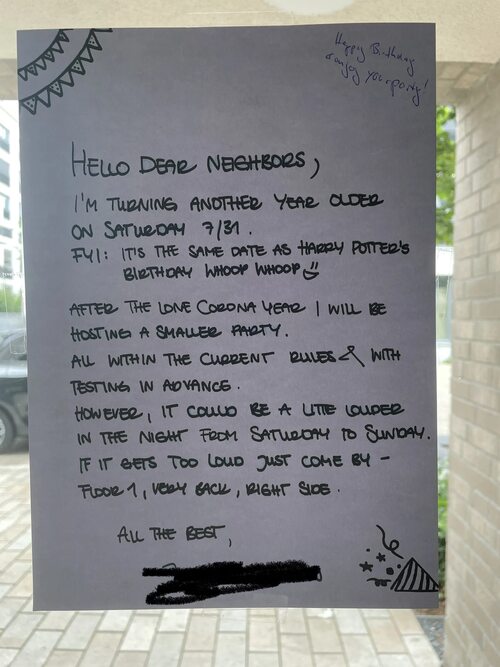 Happy Birthday
& enjoy your party!
HELLO DEAR NEIGHBORS,
I'M TURNING ANOTHER YEAR OLDER
ON SATURDAY 7/31.
FYI: IT'S THE SAME DATE AS HARRY POTTER'S
BIRTHDAY WHOOP WHOOP
AFTER THE LONE CORONA YEAR I WILL BE
HOSTING A SMALLER PARTY.
ALL WITHIN THE CURRENT RULES & WITH
TESTING IN ADVANCE.
HOWEVER, IT COULD BE A LITTE LOUDER
IN THE NIGHT FROM SATURDAY TO SUNDAY.
IF IT GETS TOO LOUD JUST COME BY -
FLOOR 1, VERY BACK, RIGHT SIDE.
ALL THE BEST,